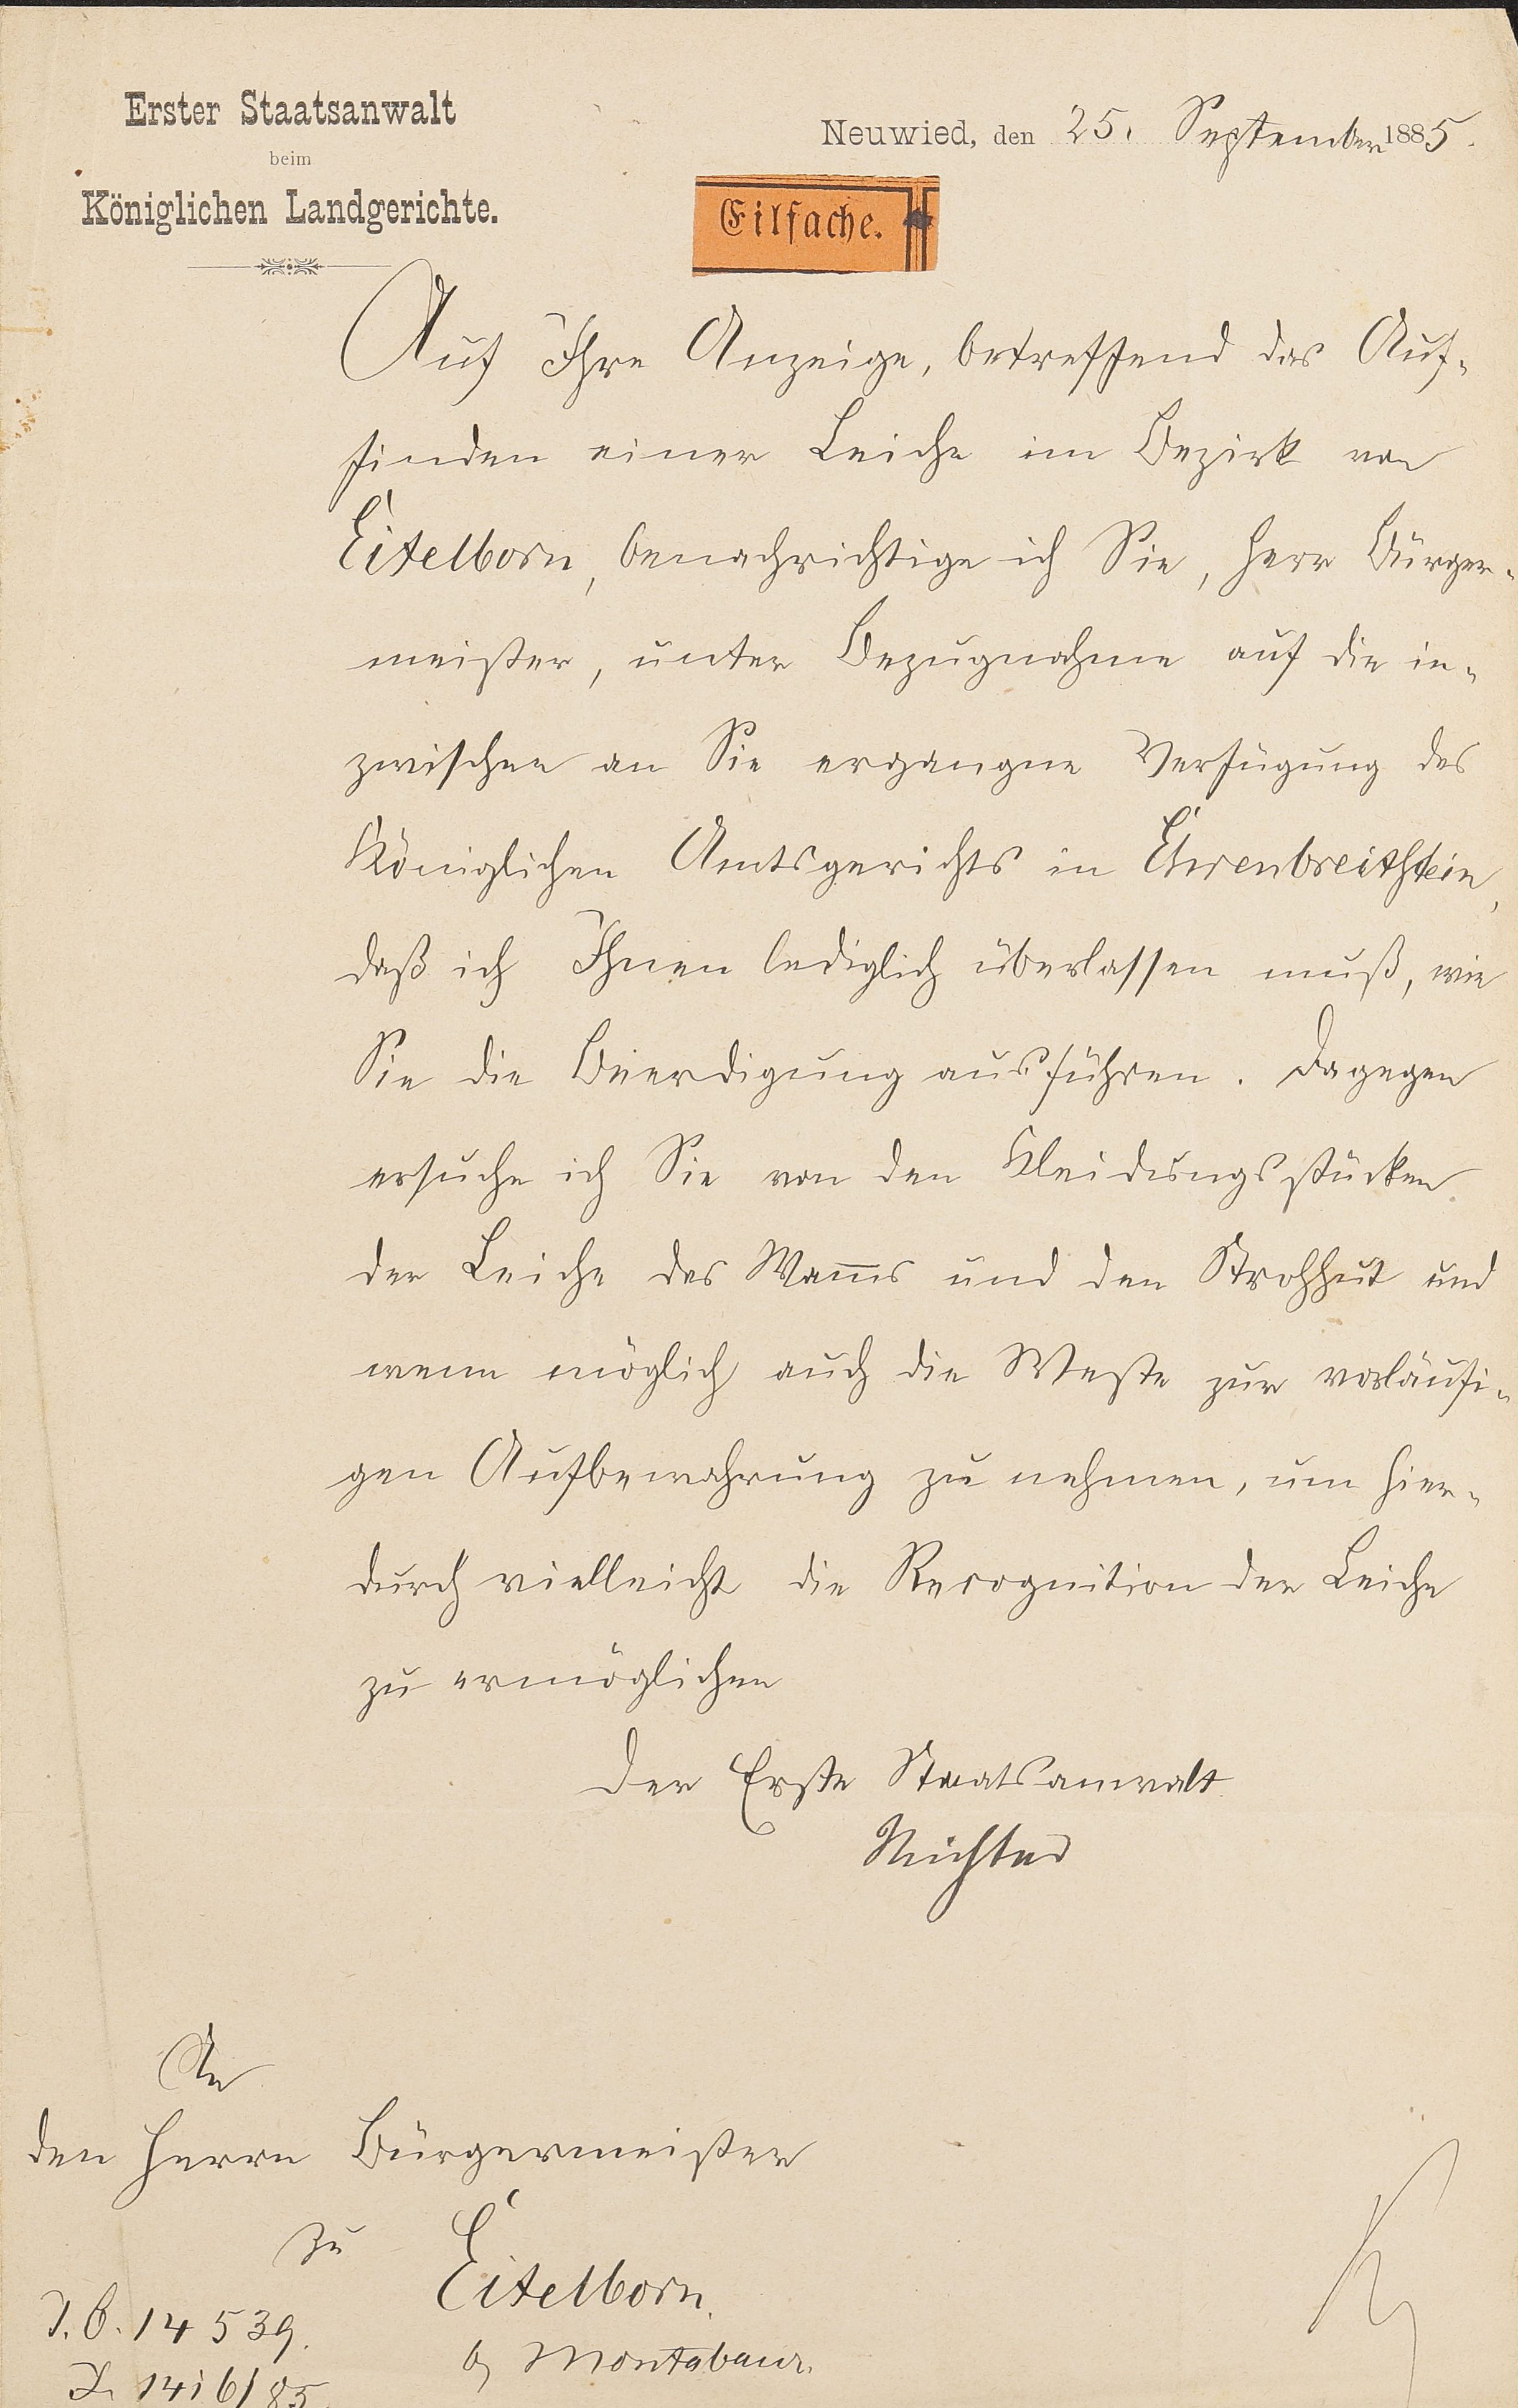 Erster Staatsanwalt
beim
Königlichen Landgerichte.
Neuwied, den 25. September 1885.
Eilsache.
Auf Ihre Anzeige, betreffend das Auf-
finden einer Leiche im Bezirk von
Eitelborn, benachrichtige ich Sie, Herr Bürger-
meister, unter Bezugnahme auf die in-
zwischen an Sie ergangne Verfügung des
Königlichen Amtsgerichts in Ehrenbreitstein,
daß ich Ihnen lediglich überlassen muß, wie
Sie die Beerdigung ausführen. Dagegen
ersuche ich Sie von den Kleidungsstücken
der Leiche das Wams und den Strohhut und
wenn möglich auch die Weste zur vorläufi-
gen Aufbewahrung zu nehmen, um hier-
durch vielleicht die Recognition der Leiche
zu ermöglichen
Der Erste Staatsanwalt
Richter
An
den Herrn Bürgermeister
zu
Eitelborn.
b/ Montabaur.
J. B. 14539.
J. 1416/85.